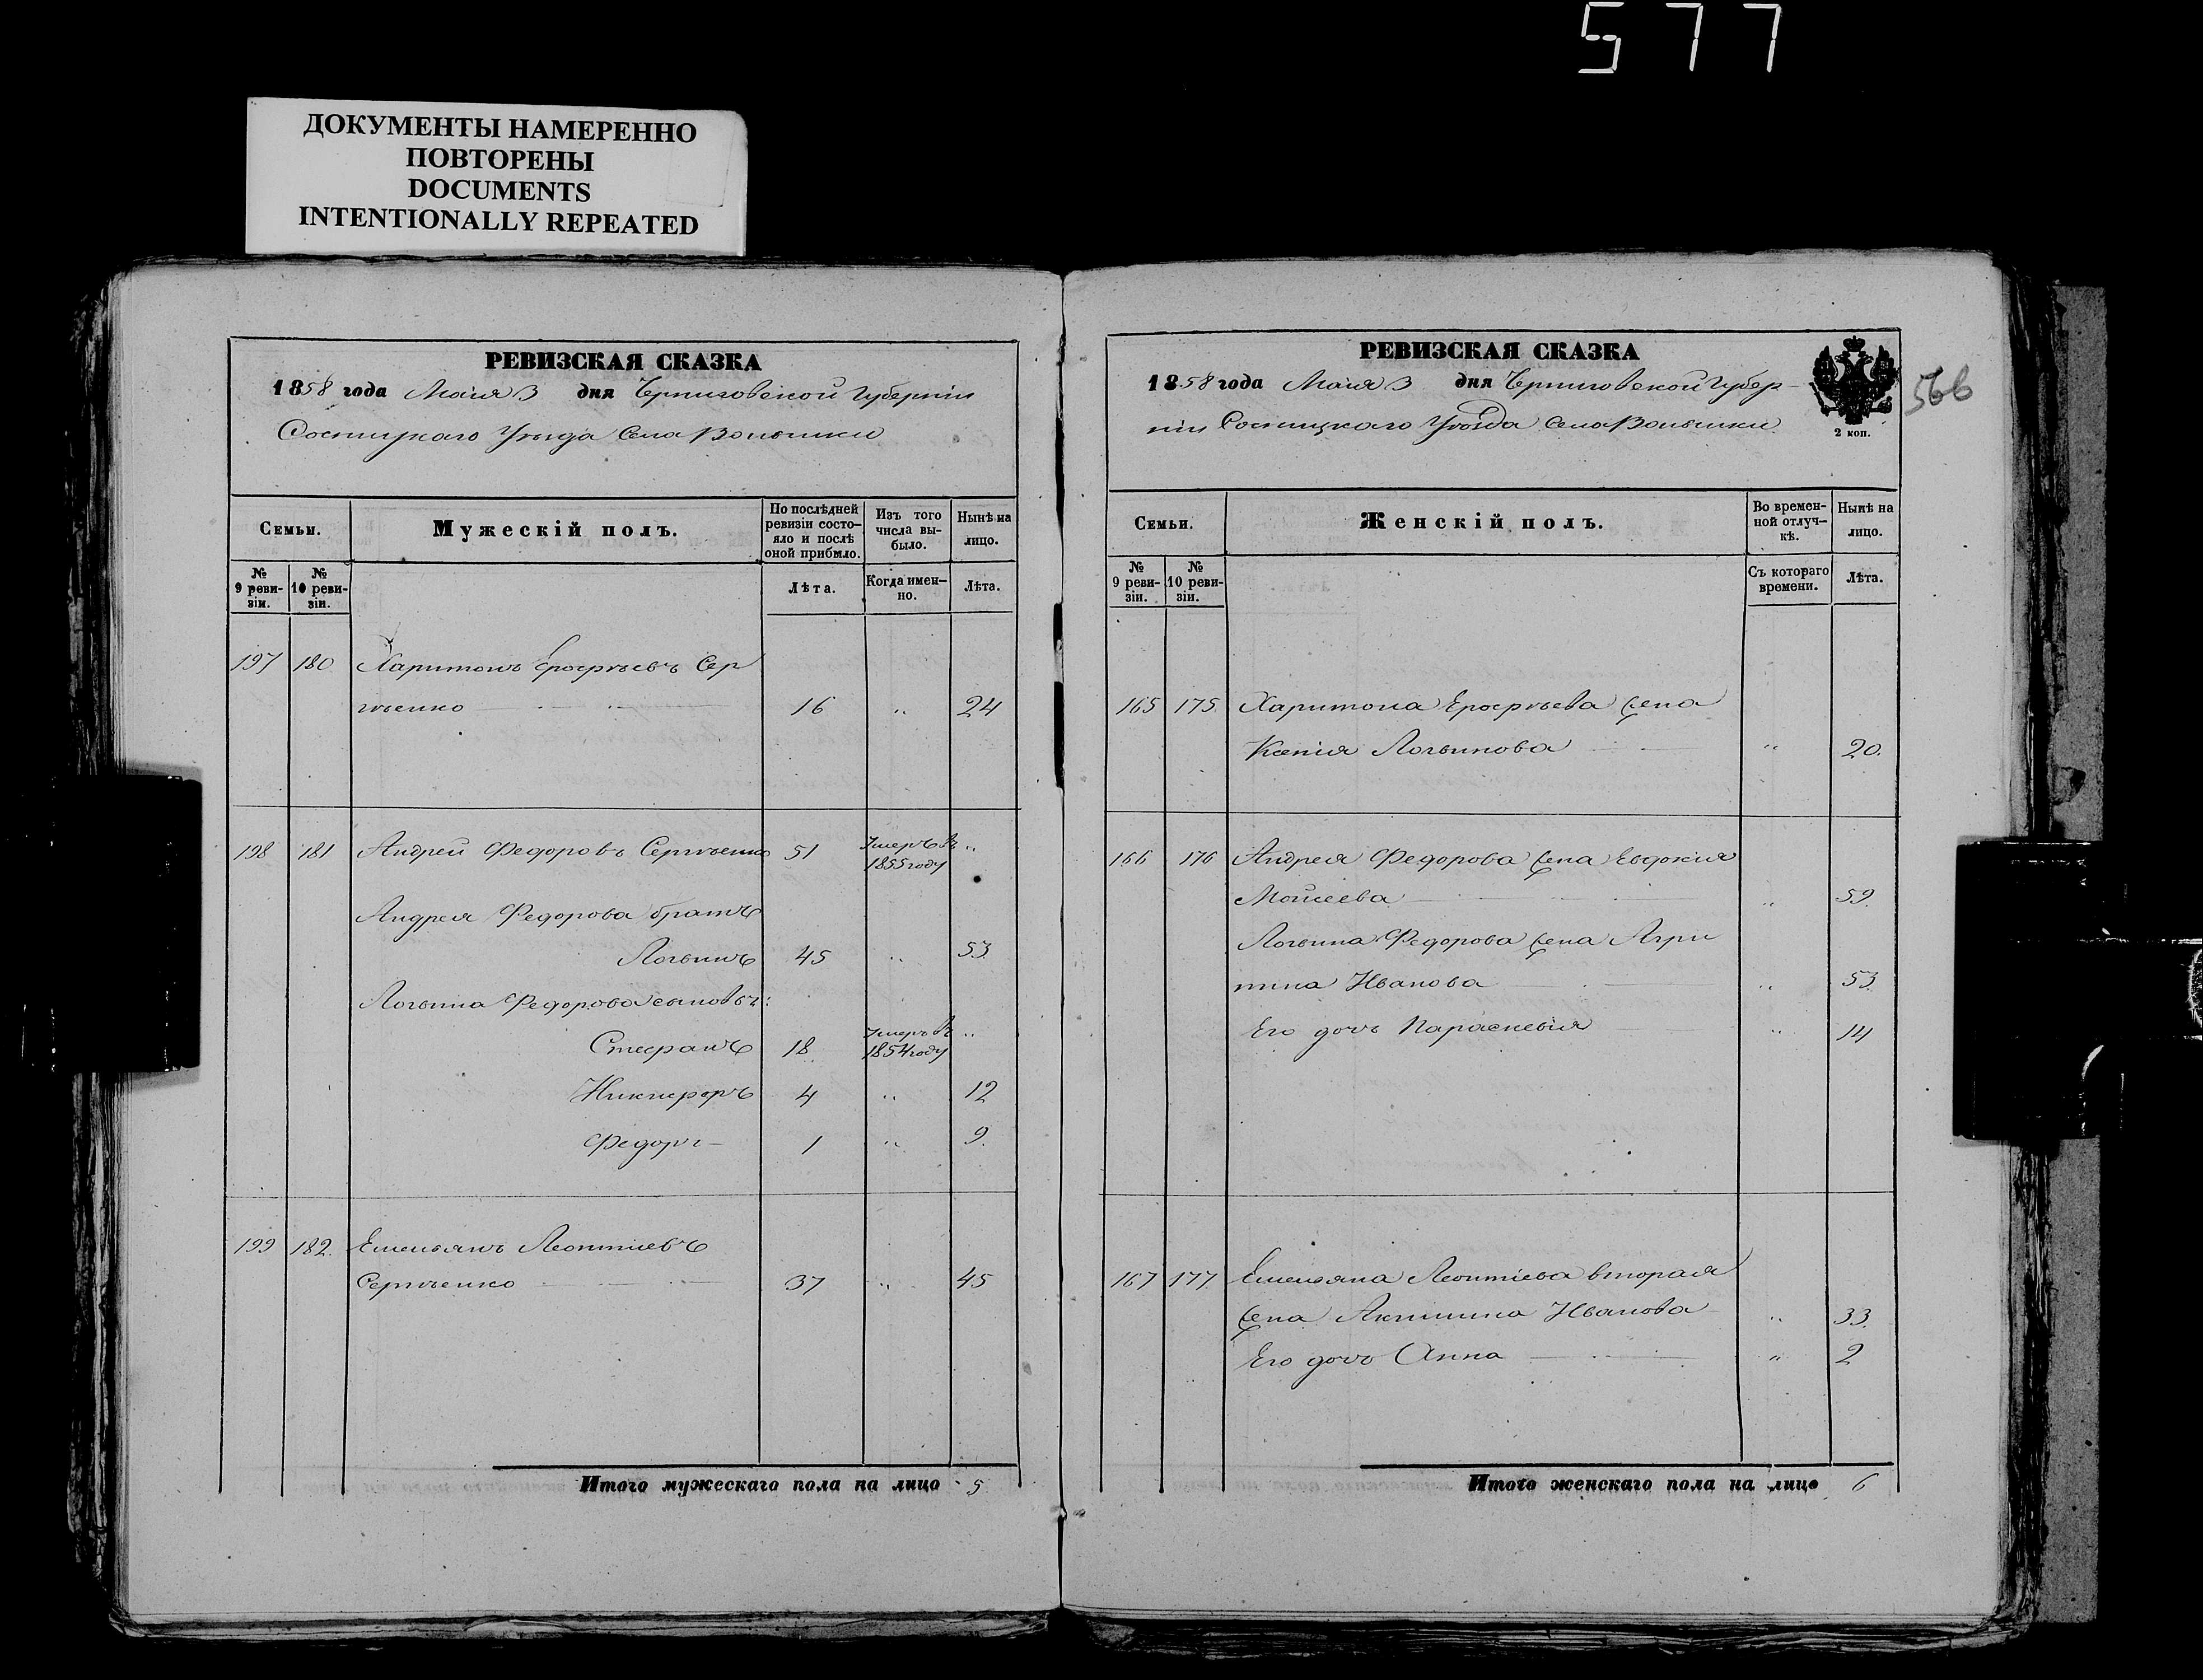 577
ДОКУМЕНТЫ НАМЕРЕННО
ПОВТОРЕНЫ
DOCUMENTS
INTENTIONALLY REPEATED
РЕВИЗСКАЯ СКАЗКА
1858 года Маія 3 дня Черниговской Губерніи
Сосницкаго Уѣзда Села Волынки
Семьи.
Мужескій полъ.
По послѣдней
ревизіи состо-
яло и послѣ
оной прибыло.
Изъ того
числа вы-
было.
Нынѣ на
лицо.
№
9 реви-
зіи.
№
10 реви-
зіи.
Лѣта.
Когда имен-
но.
Лѣта.
197 180 Харитонъ Ерофѣевъ Сер
гѣенко 16 „ 24
198 181 Андрей Федоровъ Сергѣенко 51 Умеръ въ 1855 году „
Андрея Федорова братъ
Логвинъ 45 „ 53
Логвина Федорова сыновья:
Стефанъ 18 Умеръ въ 1854 году „
Никифоръ 4 „ 12
Федоръ 1 „ 9
199 182 Емельянъ Леонтіевъ
Сергѣенко 37 „ 45
Итого мужескаго пола на лицо 5
РЕВИЗСКАЯ СКАЗКА
1858 года Маія 3 дня Черниговской Губер-
ніи Сосницкаго Уѣзда Села Волынки
2 коп.
566
Семьи.
Женскій полъ.
Во времен-
ной отлуч-
кѣ.
Нынѣ на
лицо.
№
9 реви-
зіи.
№
10 реви-
зіи.
Съ котораго
времени.
Лѣта.
165 175 Харитона Ерофѣева жена
Ксенія Логвинова „ 20
166 176 Андрея Федорова жена Евдокія
Мойсеева „ 59
Логвина Федорова жена Агри
пина Иванова „ 53
Его дочь Параскевія „ 14
167 177 Емельяна Леонтіева вторая
жена Акилина Иванова „ 33
Его дочь Анна „ 2
Итого женскаго пола на лицо 6